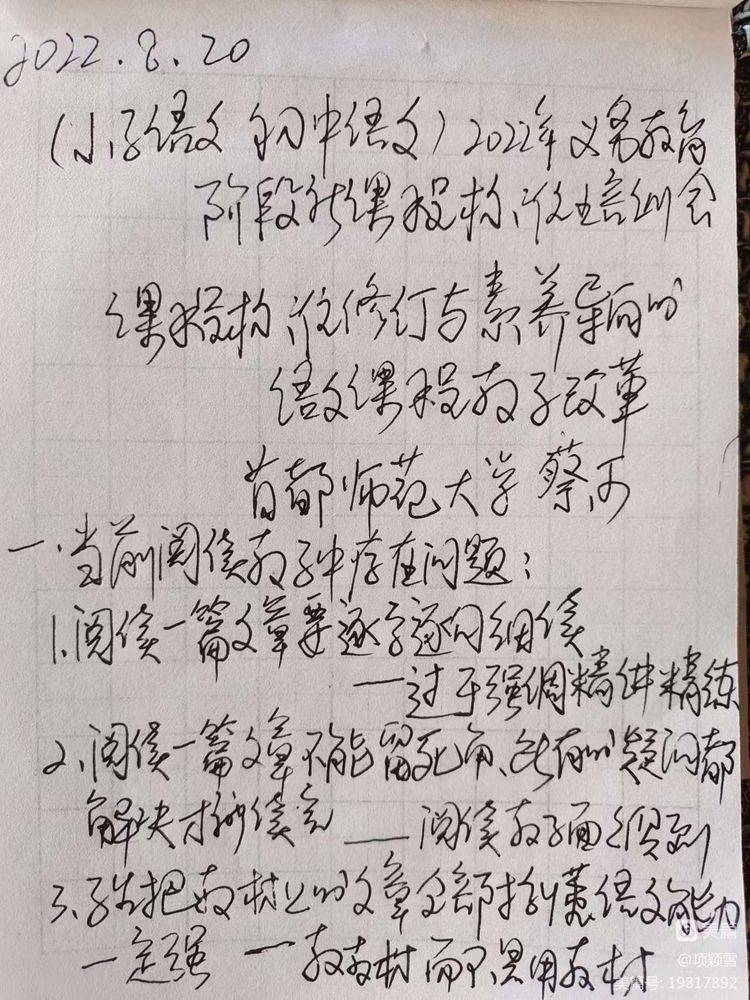 2022.8.20
(小学语文 初中语文)2022年义务教育
阶段新课程标准培训会
课程标准修订与素养导向的
语文课程教学改革
首都师范大学 蔡可
一.当前阅读教学中存在问题:
1.阅读一篇文章要逐字逐句细读
—过于强调精讲精练
2.阅读一篇文章不能留死角、所有的疑问都
解决才能读完 —阅读教学面面俱到
3.学生把教材上的文章全部掌握语文能力
一定强 —教教材而不是用教材
美篇
@项颖雪
美篇号: 19817892